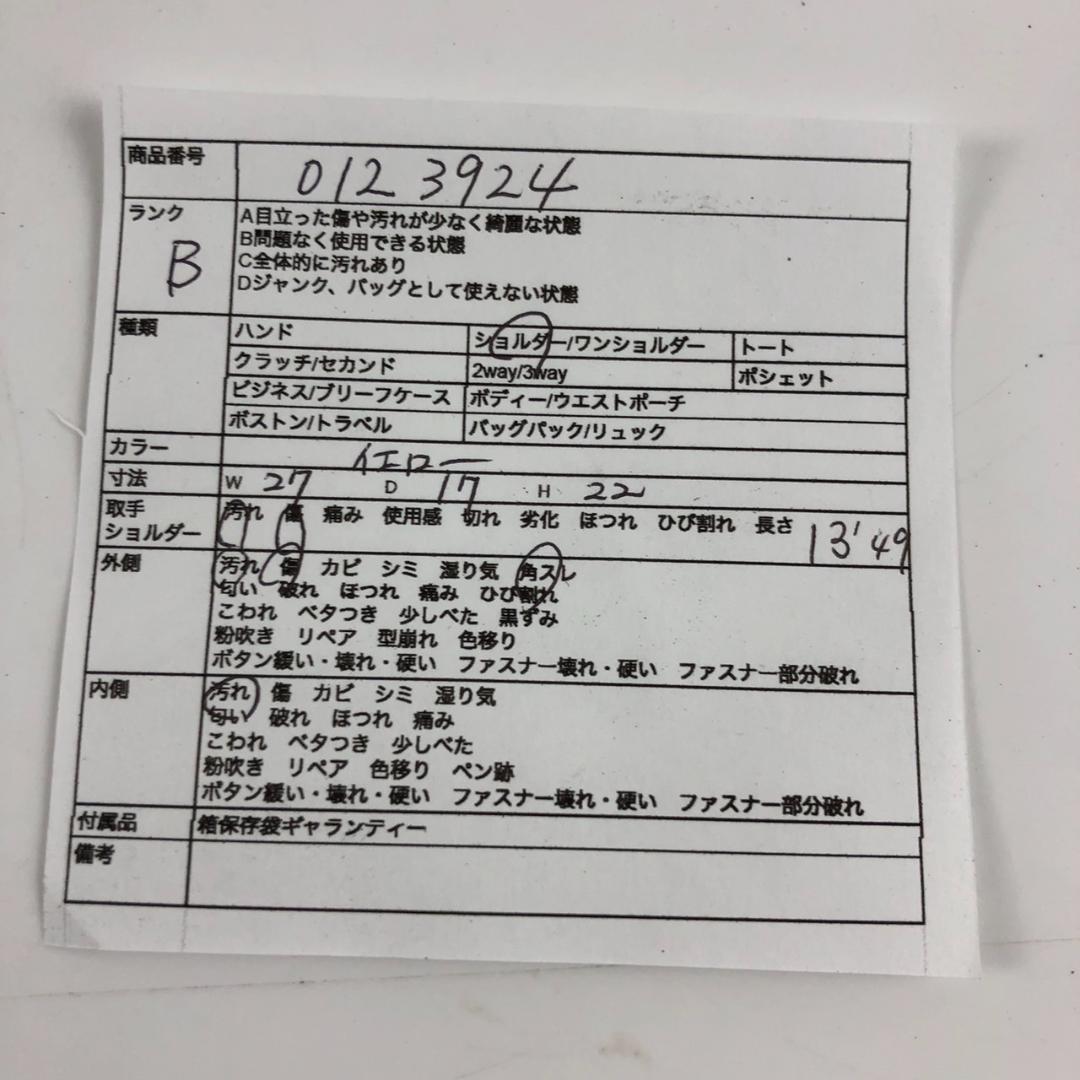 商品番号 012 3924
ランク B
A目立った傷や汚れが少なく綺麗な状態
B問題なく使用できる状態
C全体的に汚れあり
Dジャンク、バッグとして使えない状態
種類 ハンド ショルダー/ワンショルダー トート
クラッチ/セカンド 2way/3way ポシェット
ビジネス/ブリーフケース ボディー/ウエストポーチ
ボストン/トラベル バッグパック/リュック
カラー イエロー
寸法 W 27 D 17 H 22
取手 汚れ 傷 痛み 使用感 切れ 劣化 ほつれ ひび割れ 長さ 13'49
ショルダー
外側 汚れ 傷 カビ シミ 湿り気 角スレ
匂い 破れ ほつれ 痛み ひび割れ
こわれ ベタつき 少しべた 黒ずみ
粉吹き リペア 型崩れ 色移り
ボタン緩い・壊れ・硬い ファスナー壊れ・硬い ファスナー部分破れ
内側 汚れ 傷 カビ シミ 湿り気
匂い 破れ ほつれ 痛み
こわれ ベタつき 少しべた
粉吹き リペア 色移り ペン跡
ボタン緩い・壊れ・硬い ファスナー壊れ・硬い ファスナー部分破れ
付属品 箱保存袋ギャランティー
備考